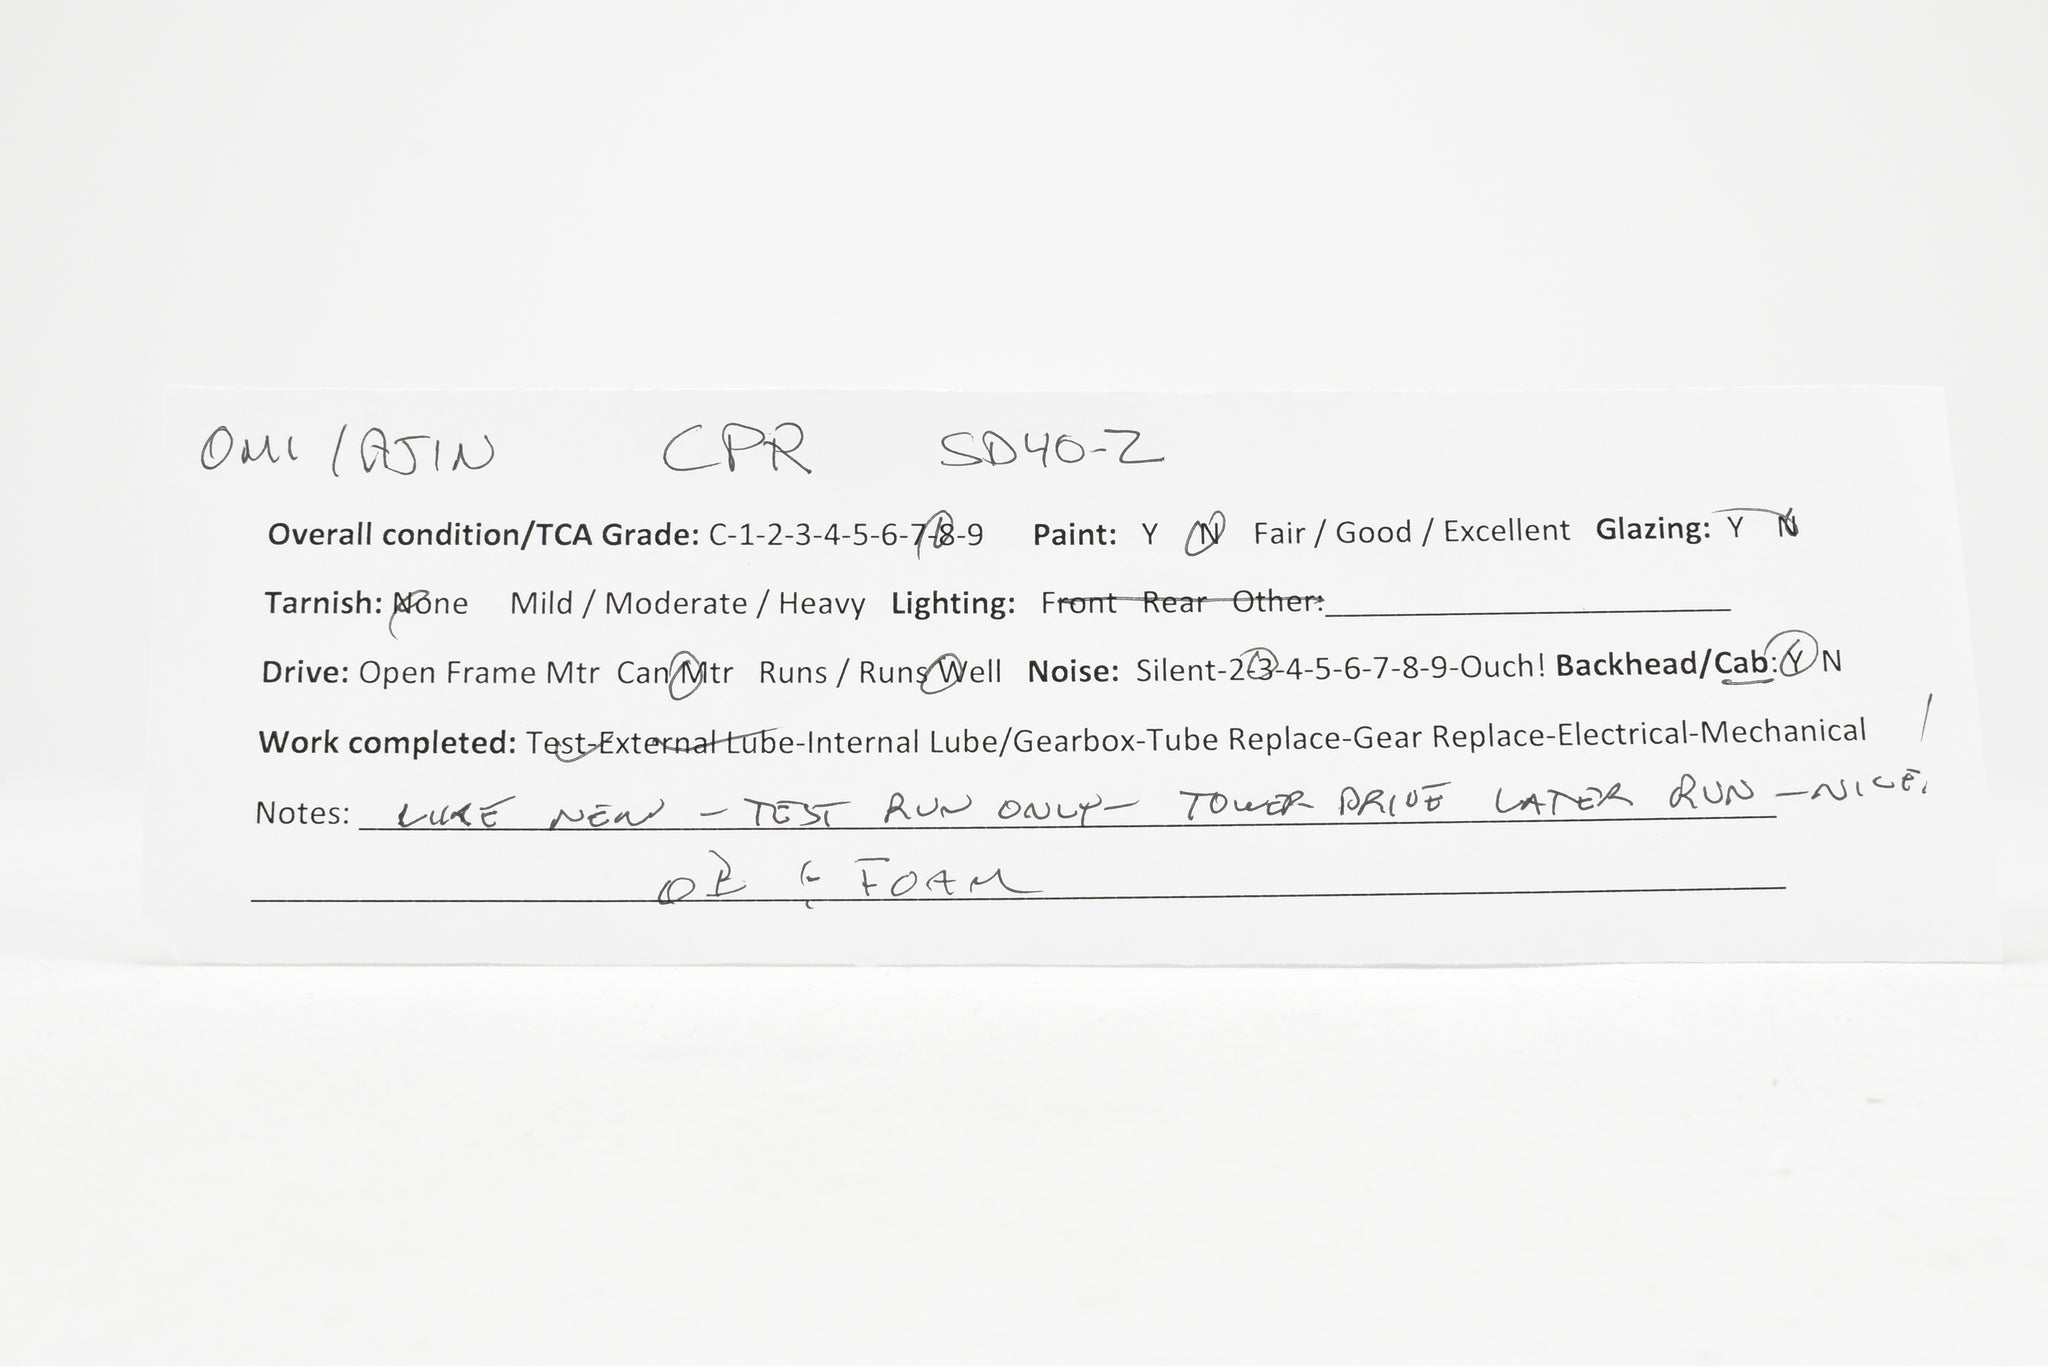 OMI / AJIN CPR SD40-2
Overall condition/TCA Grade: C-1-2-3-4-5-6-7-8-9 Paint: Y N Fair / Good / Excellent Glazing: Y N
Tarnish: None Mild / Moderate / Heavy Lighting: Front Rear Other:
Drive: Open Frame Mtr Can Mtr Runs / Runs Well Noise: Silent-2-3-4-5-6-7-8-9-Ouch! Backhead/Cab: Y N
Work completed: Test-External Lube-Internal Lube/Gearbox-Tube Replace-Gear Replace-Electrical-Mechanical
Notes: LIKE NEW - TEST RUN ONLY - TOWER DRIVE LATER RUN - NICE!
OB & FOAM